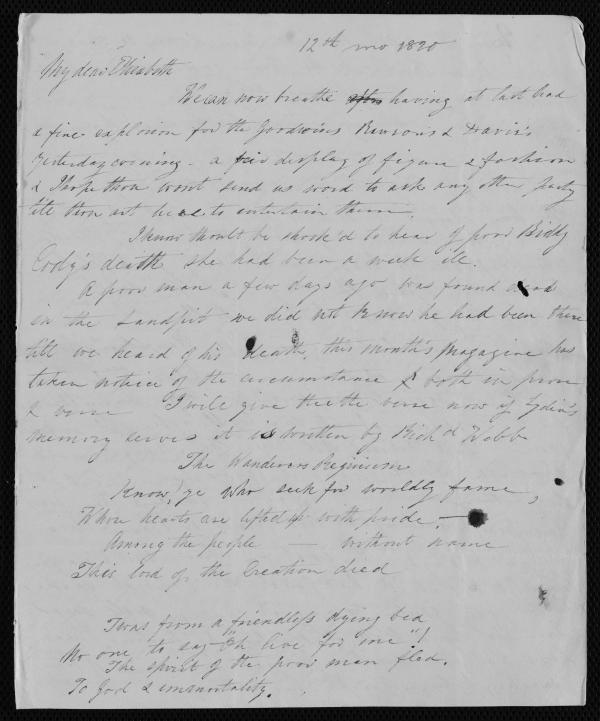 12th mo 1820
My dear Elizabeth
We can now breathe after having at last had
a fine explosion for the Goodwins & Davis's
yesterday evening - a display of figure & fashion
& I hope thou wont send us word to ask any other party
till thou art here to entertain them.
I know thou'lt be shock'd to hear of poor Biddy
Cody's death she had been a week ill.
A poor man a few days ago was found dead
in the Sandpit we did not know he had been there
till we heard of his death, this month's Magazine has
taken notice of the circumstance & both in prose
& verse I will give thee the verse now if Lydia's
memory serves it is written by Richd Webb
The Wanderers Requiem
Know, ye who seek for worldly fame,
Whose hearts are lifted up with pride,
Among the people — without name
This lord of the Creation died
Twas from a friendless dying bed
No one to say "Oh live for me"!
The spirit of the poor man fled.
To God & immortality.